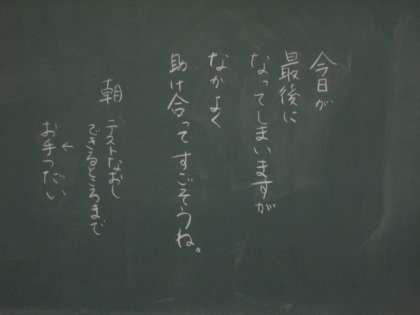 今日が
最後に
なってしまいますが
なかよく
助け合ってすごそうね。
朝 テストなおし
できるところまで
↓
お手つだい